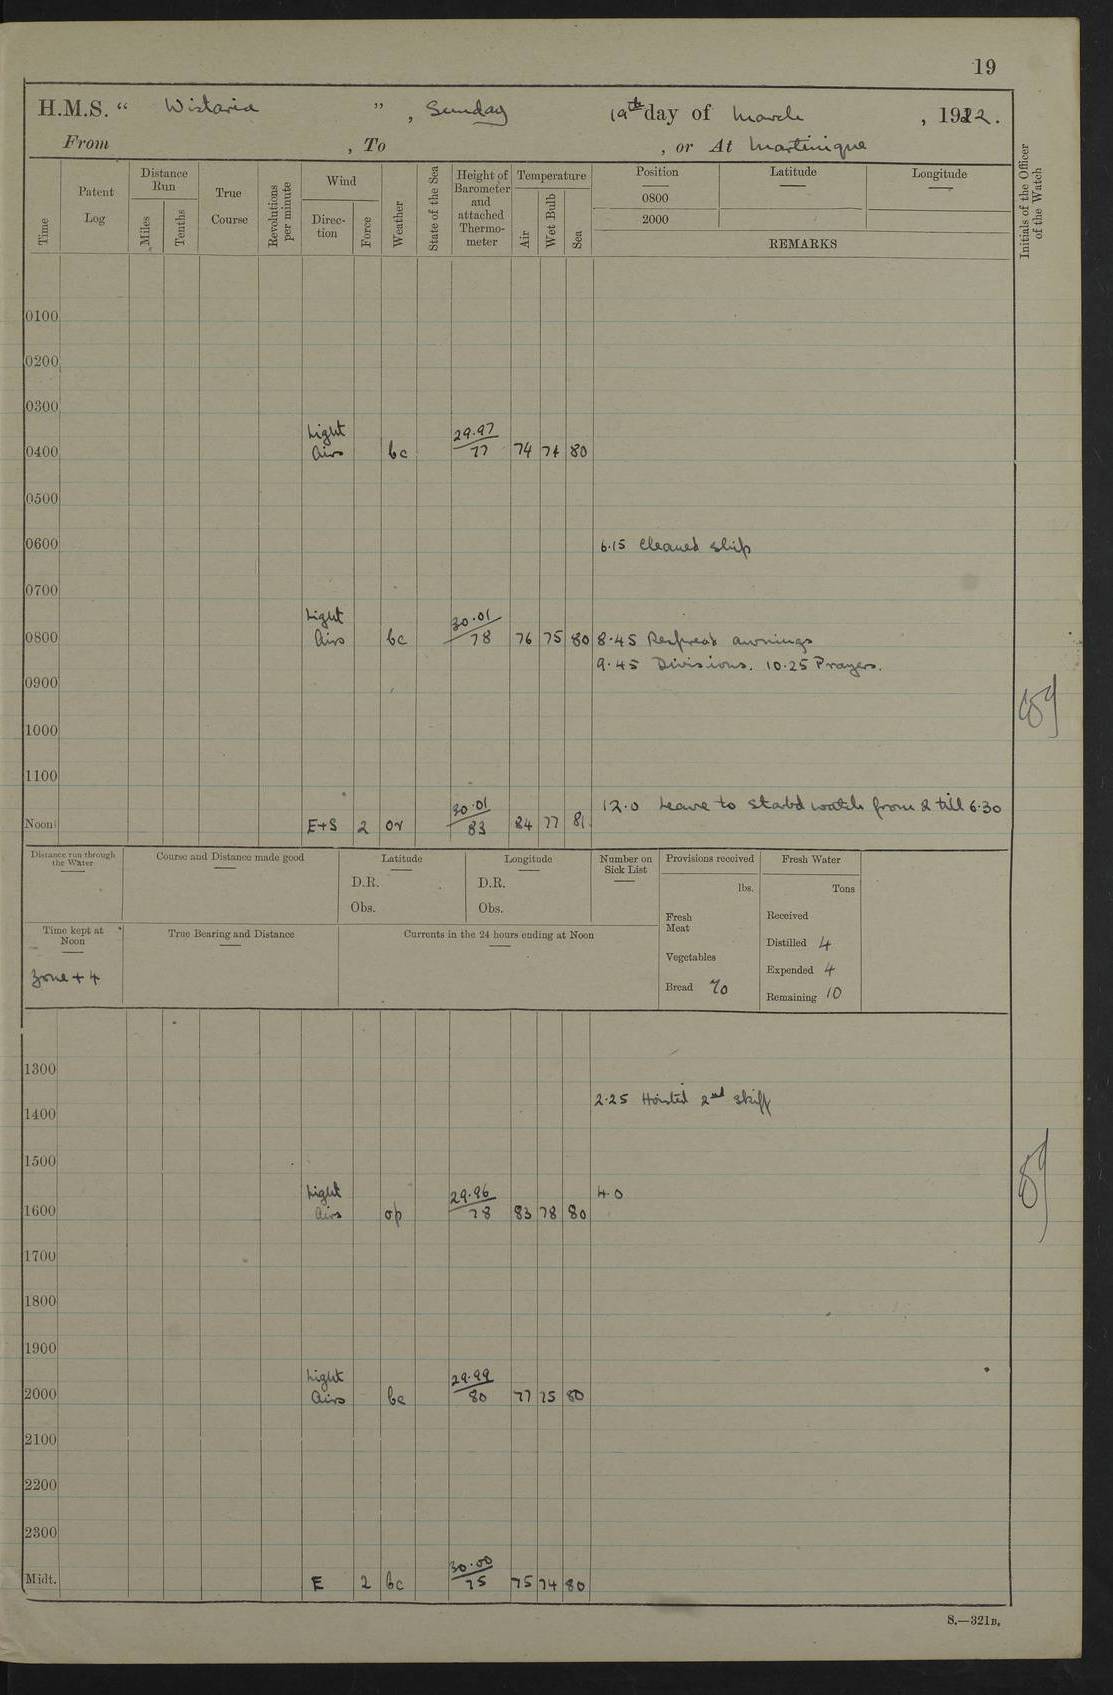 19
H.M.S. “ Wistaria ” , Sunday 19th day of March , 1922.
From , To , or At Martinique
Time
Patent Log
Distance Run
Miles
Tenths
True Course
Revolutions per minute
Wind
Direc-tion
Force
Weather
State of the Sea
Height of Barometer and attached Thermo-meter
Temperature
Air
Wet Bulb
Sea
Position
0800
2000
Latitude
Longitude
REMARKS
Initials of the Officer of the Watch
0100
0200
0300
Light 29.97
0400 Airs bc 77 74 74 80
0500
0600 6.15 Cleaned ship
0700
Light 30.01
0800 Airs bc 78 76 75 80 8.45 Respread awnings
9.45 Divisions. 10.25 Prayers.
0900
1000
1100
30.01 12.0 Leave to Starbd watch from 2 till 6.30
Noon E+S 2 or 83 84 77 81
Distance run through the Water
Course and Distance made good
Latitude
D.R.
Obs.
Longitude
D.R.
Obs.
Number on Sick List
Provisions received
lbs.
Fresh Meat
Vegetables
Bread 70
Fresh Water
Tons
Received
Distilled 4
Expended 4
Remaining 10
Time kept at Noon
Zone + 4
True Bearing and Distance
Currents in the 24 hours ending at Noon
1300
2.25 Hoisted 2nd Skiff
1400
1500
Light 29.96 4.0
1600 Airs op 78 83 78 80
1700
1800
1900
Light 29.99
2000 Airs bc 80 77 75 80
2100
2200
2300
30.00
Midt. E 2 bc 75 75 74 80
S.—321B.